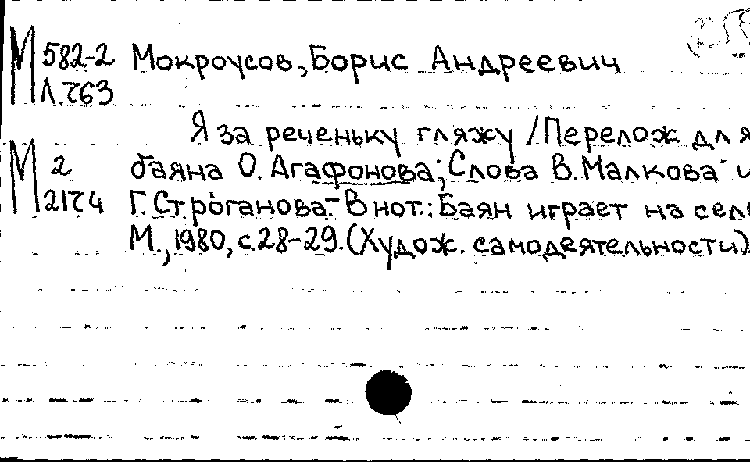 М 582-2 Мокроусов, Борис Андреевич
Л.763
Я за реченьку гляжу / Перелож для
М 2 баяна О. Агафонова; Слова В. Малкова и
2174 Г. Строганова.- В нот.: Баян играет на сел
М., 1980, с.28-29. (Худож. самодеятельности)